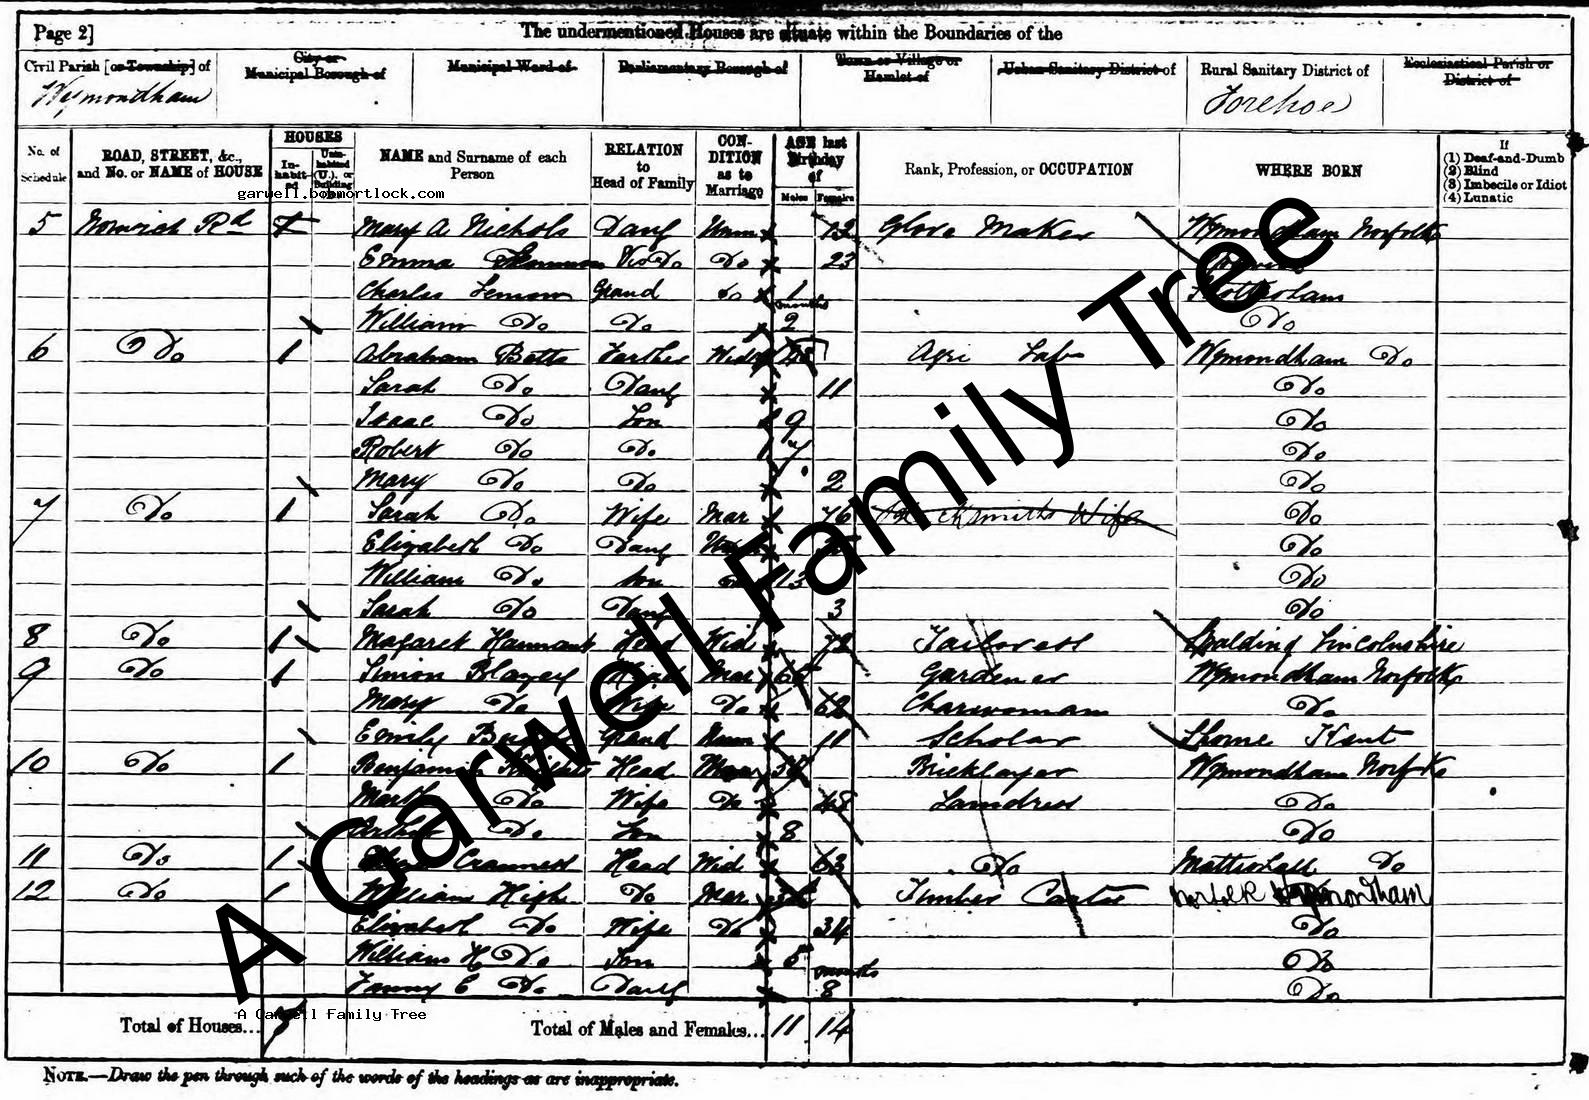 Page 2] The undermentioned Houses are situate within the Boundaries of the
Civil Parish [or Township] of City or Municipal Borough of Municipal Ward of Parliamentary Borough of Town or Village or Hamlet of Urban Sanitary District of Rural Sanitary District of Ecclesiastical Parish or District of
Wymondham Forehoe
No. of Schedule ROAD, STREET, &c., and No. or NAME of HOUSE HOUSES Inhabited Uninhabited (U.), or Building NAME and Surname of each Person RELATION to Head of Family CONDITION as to Marriage AGE last Birthday of Males Females Rank, Profession, or OCCUPATION WHERE BORN If (1) Deaf-and-Dumb (2) Blind (3) Imbecile or Idiot (4) Lunatic
garwell.bobmortlock.com
5 Norwich Rd Mary A Nichols Daug Unm Glove Maker Wymondham Norfolk
Emma Do 23
Charles Grand 1
months
William Do Do 2 Do
6 Do 1 Abraham Betts Farther Widr Agri Lab Wymondham Do
Sarah Do Daug 11 Do
Isaac Do Son 9 Do
Robert Do Do 7 Do
Mary Do Do 2 Do
7 Do 1 Sarah Do Wife Mar Wife Do
Elizabeth Do Daug Do
William Do Son Do 13 Do
Sarah Do Daug 3 Do
8 Do 1 Magaret Hannant Head Wid 72 Tailoress Spalding Lincolnshire
9 Do 1 Simon Blazey Head Mar Gardener Wymondham Norfolk
Mary Do Wife Do 62 Charwoman Do
Emily Grand Unm 11 Scholar Shorne Kent
10 Do 1 Benjamin Head Mar Bricklayer Wymondham Norfolk
Do Wife Do 48 Laundress Do
Arthur Do Son 8 Do
11 Do 1 Head Wid 63 Do Do
12 Do 1 William High Do Mar Timber Carter Norfolk Wymondham
Elizabeth Do Wife Do 34 Do
William H Do Son 5 Do
months
Fanny E Do Daug 8 Do
A Garwell Family Tree
Total of Houses... Total of Males and Females... 11 14
NOTE.—Draw the pen through such of the words of the headings as are inappropriate.
A Garwell Family Tree